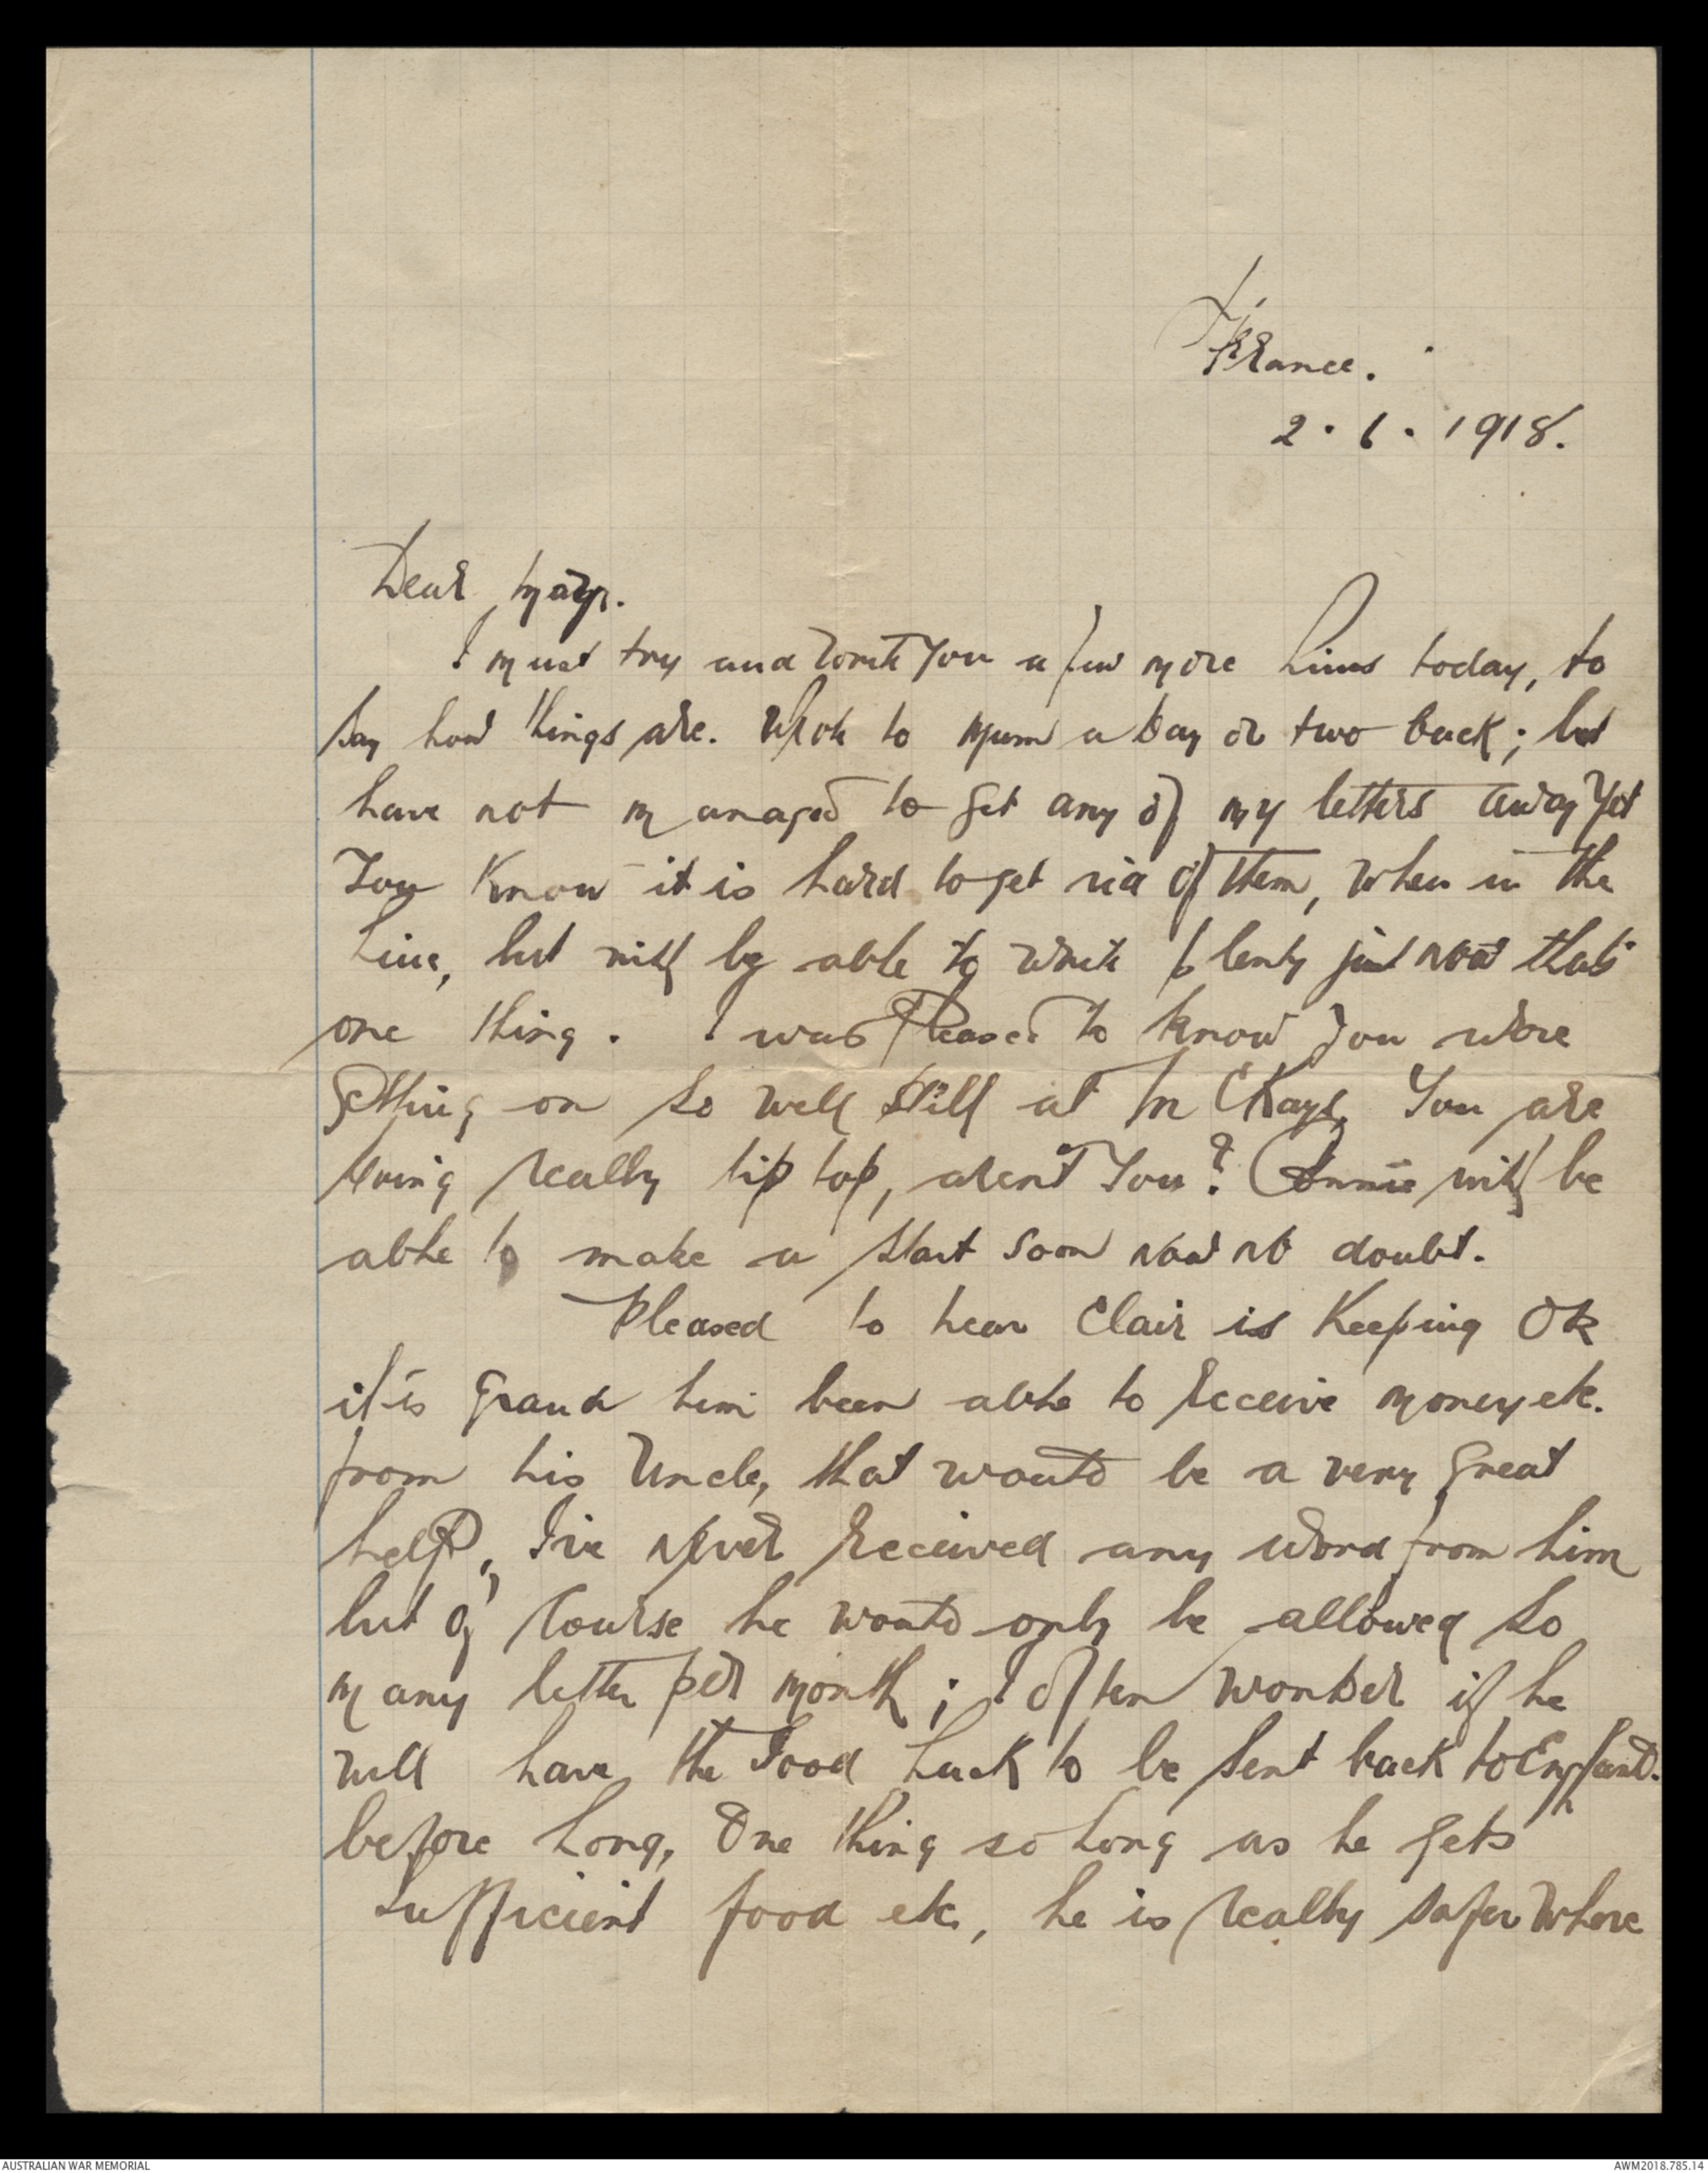 France.
2.6.1918.
Dear Mary.
I must try and write you a few more lines today, to
say how things are. Wrote to Mum a day or two back; but
have not managed to get any of my letters away yet
You know it is hard to get rid of them, when in the
line, but will be able to write plenty just now that's
one thing. I was Pleased to know you were
getting on so well still at McKays, You are
doing really tip top, arent You? Connie will be
able to make a start soon now no doubt.
Pleased to hear Clair is Keeping OK
it is grand him been able to receive money etc.
from his Uncle, that would be a very great
help, I've never received any word from him
but of course he would only be allowed so
many letter per month; I often wonder if he
will have the good luck to be sent back to England.
before long, One thing so long as he gets
sufficient food etc, he is really safer where
AUSTRALIAN WAR MEMORIAL
AWM2018.785.14